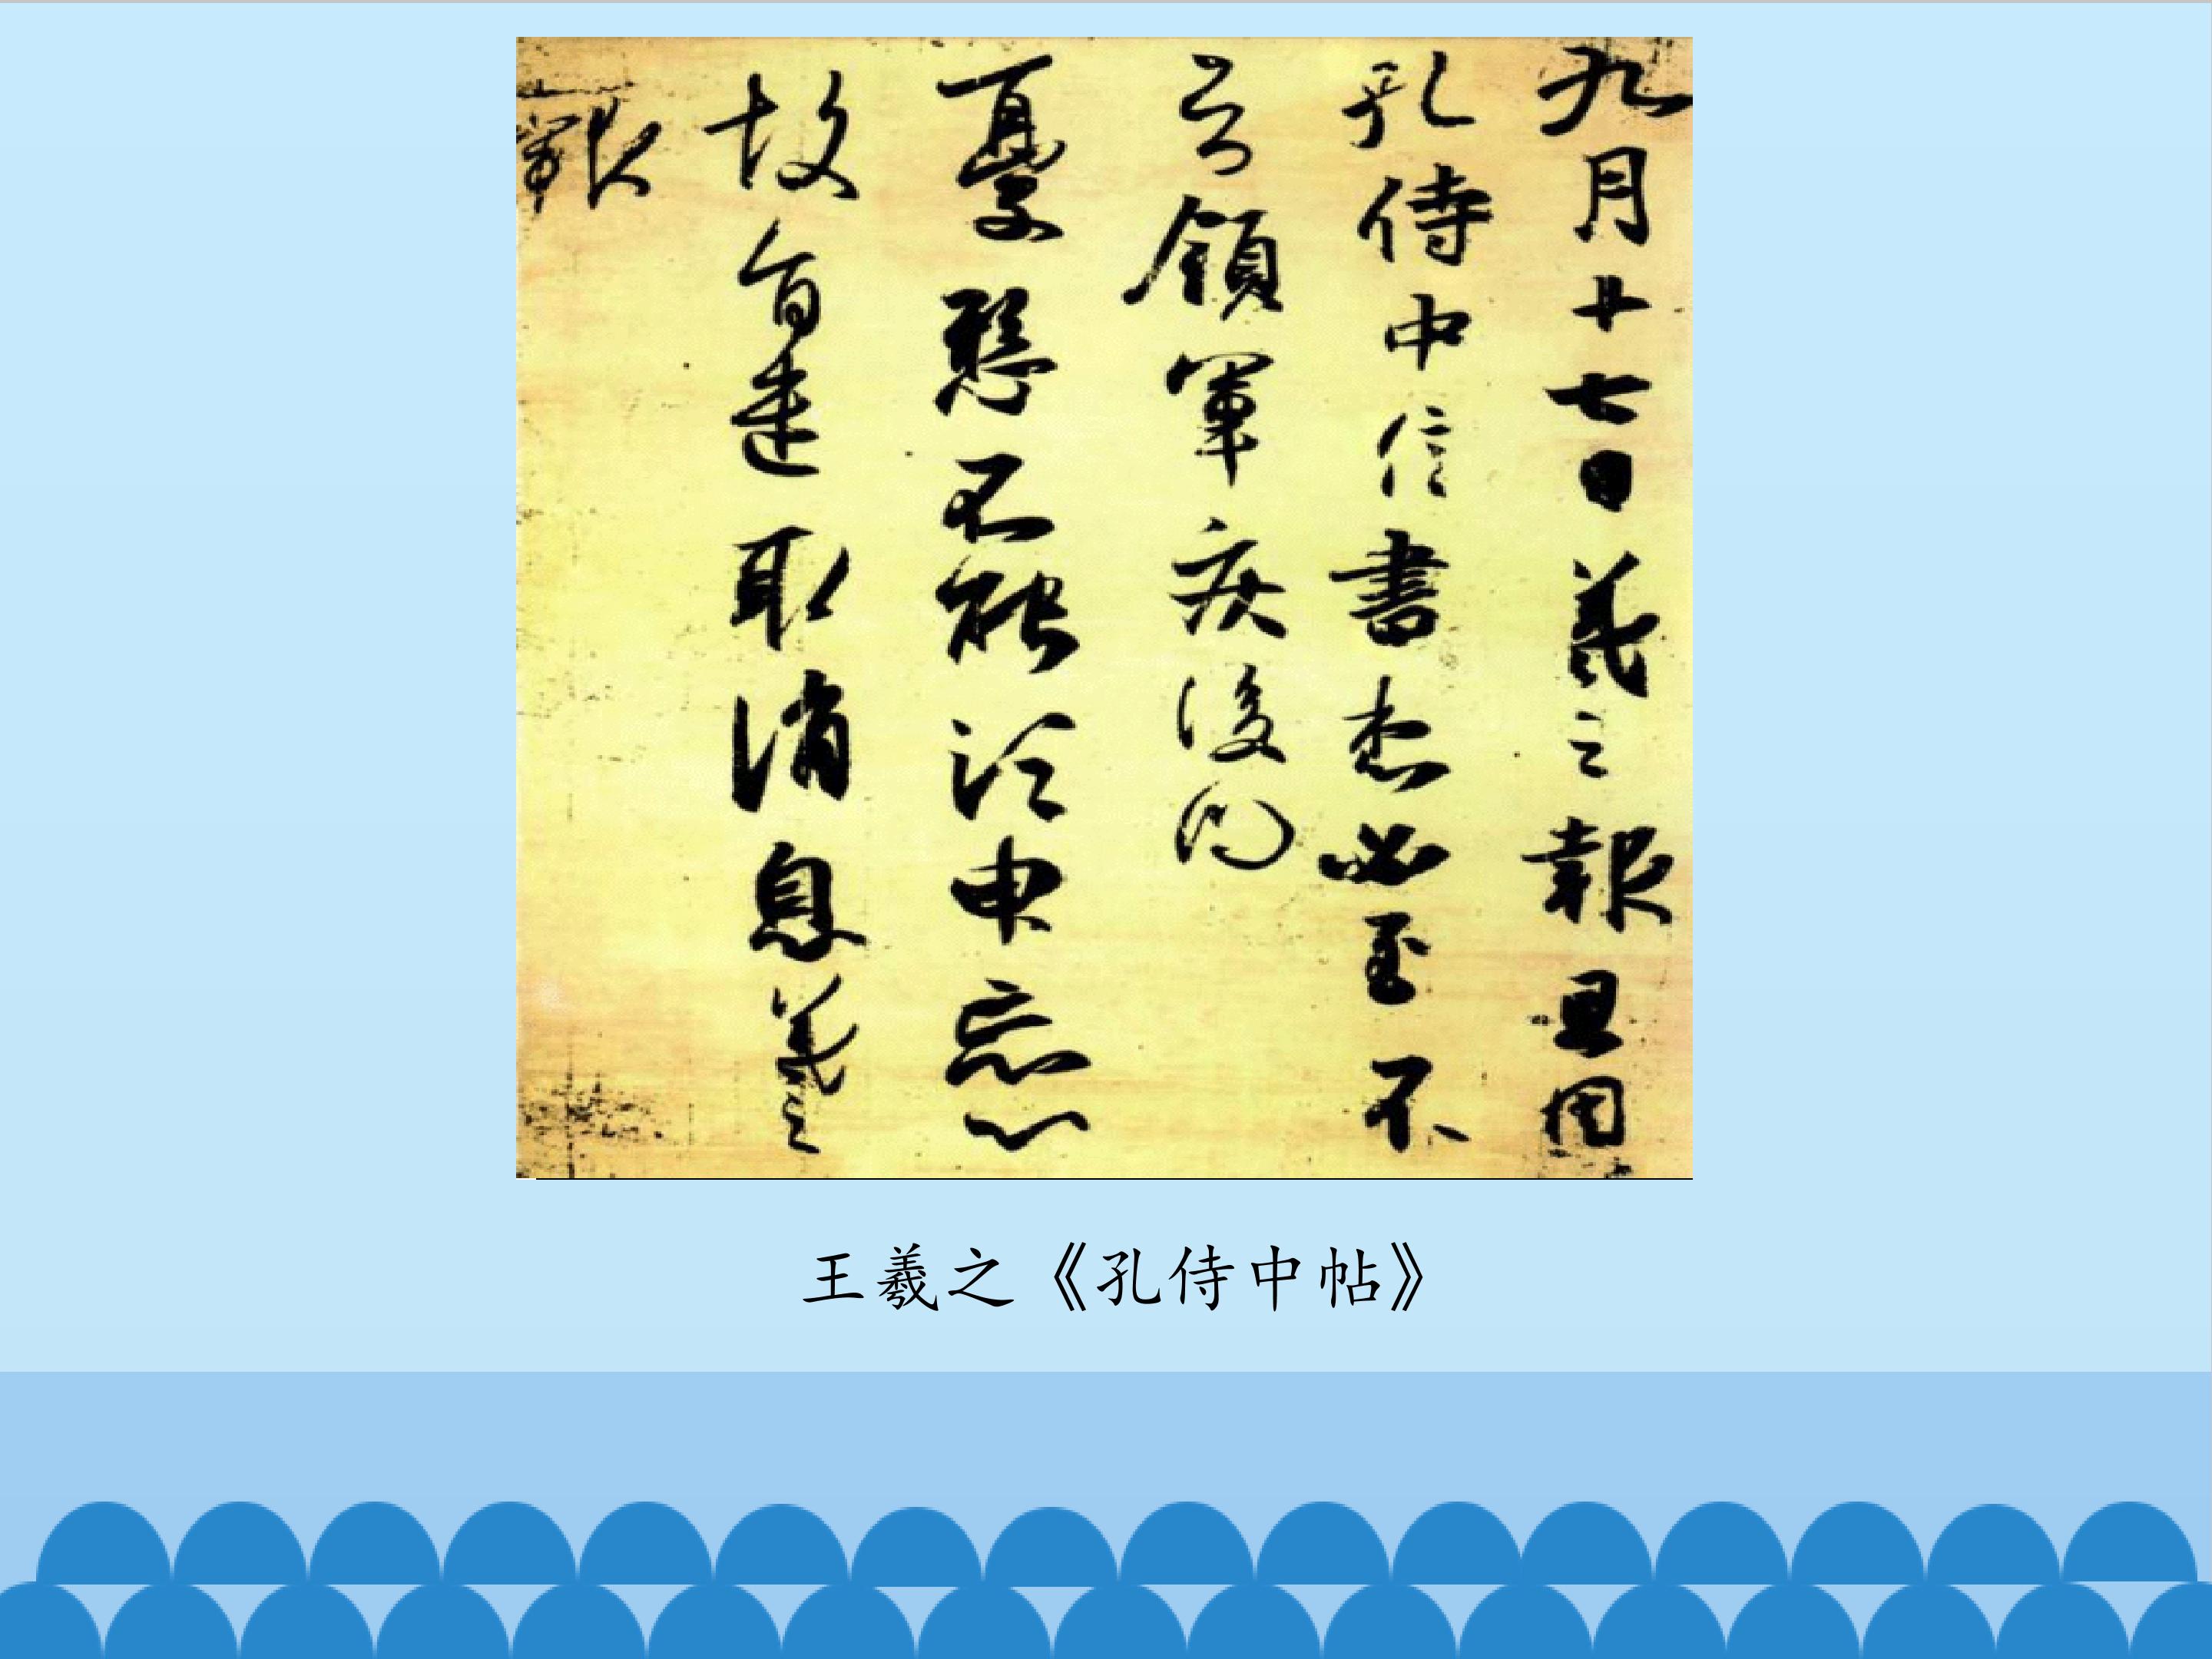 九月十七日羲之報且因
孔侍中信書想必至不
知領軍疾後問
憂懸不能須臾忘心
故旨遣取消息羲之
報
王羲之《孔侍中帖》